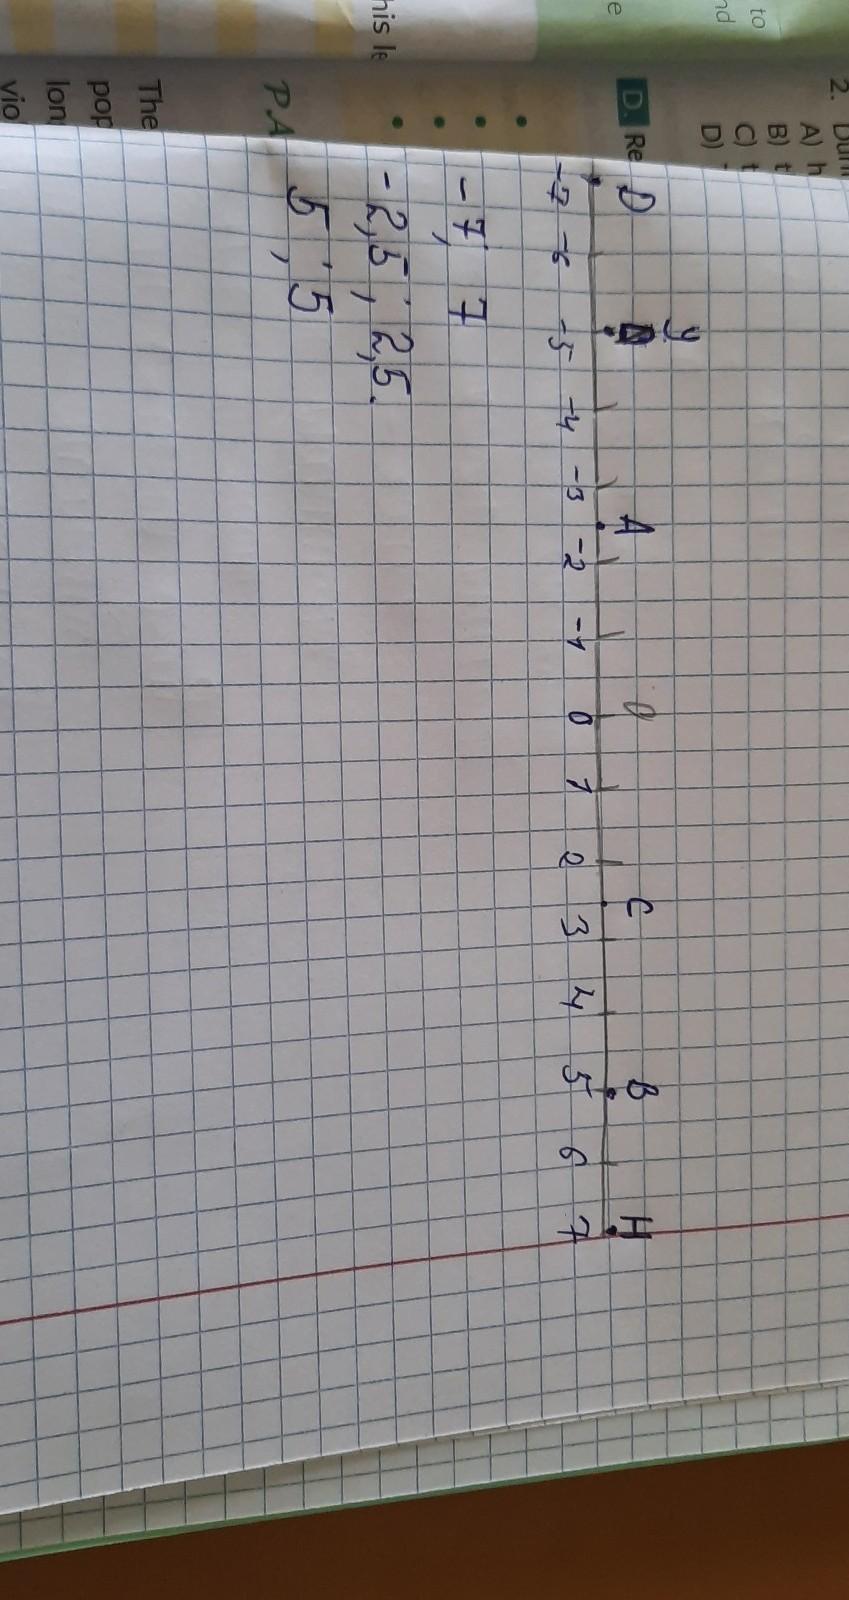 D y A O C B H
-7 -6 -5 -4 -3 -2 -1 0 1 2 3 4 5 6 7
-7, 7
-2,5; 2,5.
5; 5
2.
A) h
B) t
C) t
D)
D. Re
to
nd
e
his le
P.A
The
pop
lon
vio